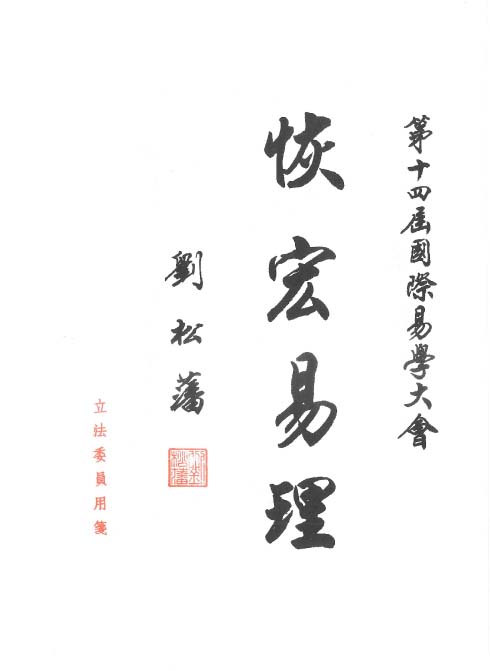 第十四屆國際易學大會
恢宏易理
劉松藩
立法委員用箋